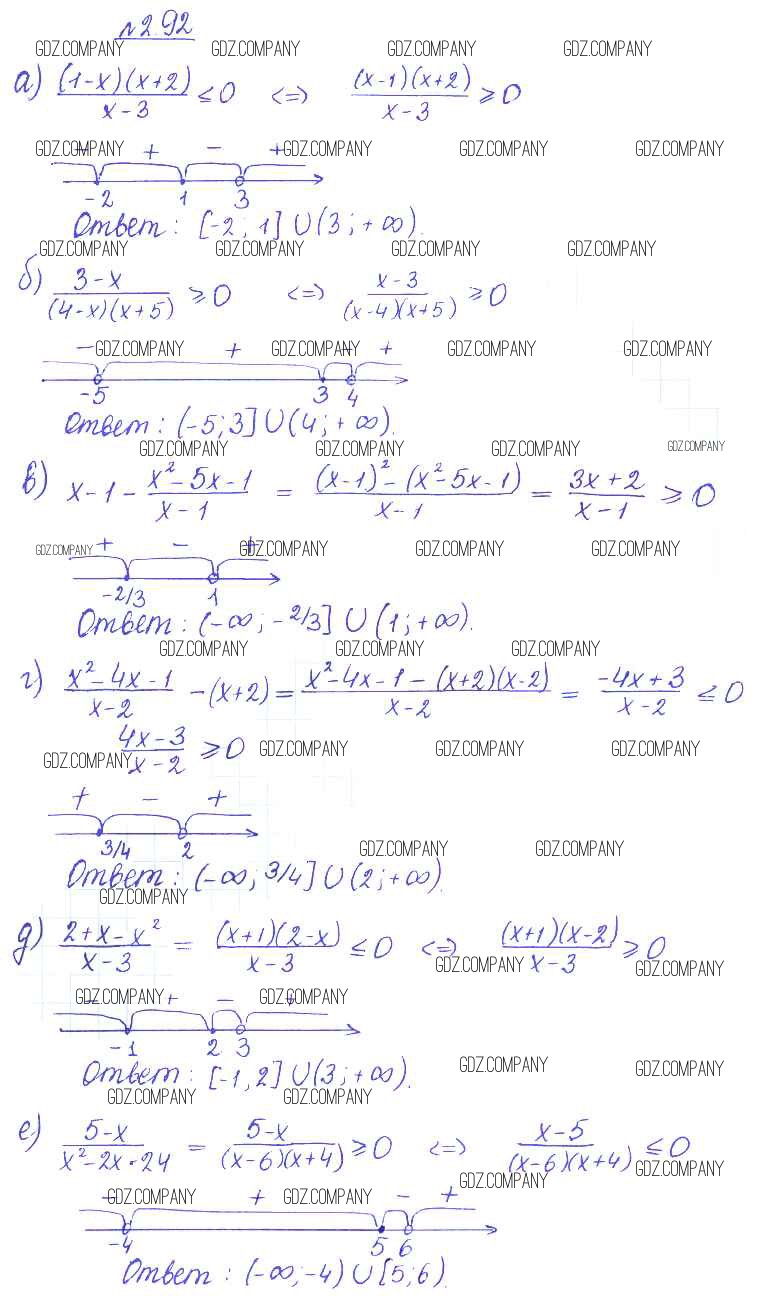 №2.92
GDZ.COMPANY GDZ.COMPANY GDZ.COMPANY GDZ.COMPANY
а) (1-x)(x+2)/(x-3) ≤ 0 <=> (x-1)(x+2)/(x-3) ≥ 0
GDZ.COMPANY GDZ.COMPANY GDZ.COMPANY GDZ.COMPANY
- + - +
-2 1 3
Ответ: [-2; 1] ∪ (3; +∞).
GDZ.COMPANY GDZ.COMPANY GDZ.COMPANY GDZ.COMPANY
б) (3-x)/((4-x)(x+5)) ≥ 0 <=> (x-3)/((x-4)(x+5)) ≥ 0
- + - +
GDZ.COMPANY GDZ.COMPANY GDZ.COMPANY GDZ.COMPANY
-5 3 4
Ответ: (-5; 3] ∪ (4; +∞).
GDZ.COMPANY GDZ.COMPANY GDZ.COMPANY GDZ.COMPANY
в) x-1 - (x²-5x-1)/(x-1) = ((x-1)²-(x²-5x-1))/(x-1) = (3x+2)/(x-1) ≥ 0
+ - +
GDZ.COMPANY GDZ.COMPANY GDZ.COMPANY GDZ.COMPANY
-2/3 1
Ответ: (-∞; -2/3] ∪ (1; +∞).
GDZ.COMPANY GDZ.COMPANY GDZ.COMPANY
г) (x²-4x-1)/(x-2) - (x+2) = (x²-4x-1-(x+2)(x-2))/(x-2) = (-4x+3)/(x-2) ≤ 0
(4x-3)/(x-2) ≥ 0
GDZ.COMPANY GDZ.COMPANY GDZ.COMPANY GDZ.COMPANY
+ - +
3/4 2
GDZ.COMPANY GDZ.COMPANY
Ответ: (-∞; 3/4] ∪ (2; +∞).
GDZ.COMPANY
д) (2+x-x²)/(x-3) = (x+1)(2-x)/(x-3) ≤ 0 <=> (x+1)(x-2)/(x-3) ≥ 0
GDZ.COMPANY GDZ.COMPANY
- + - +
GDZ.COMPANY GDZ.COMPANY
-1 2 3
Ответ: [-1, 2] ∪ (3; +∞).
GDZ.COMPANY GDZ.COMPANY
GDZ.COMPANY GDZ.COMPANY
е) (5-x)/(x²-2x-24) = (5-x)/((x-6)(x+4)) ≥ 0 <=> (x-5)/((x-6)(x+4)) ≤ 0
GDZ.COMPANY GDZ.COMPANY
- + - +
GDZ.COMPANY GDZ.COMPANY
-4 5 6
Ответ: (-∞; -4) ∪ [5; 6).